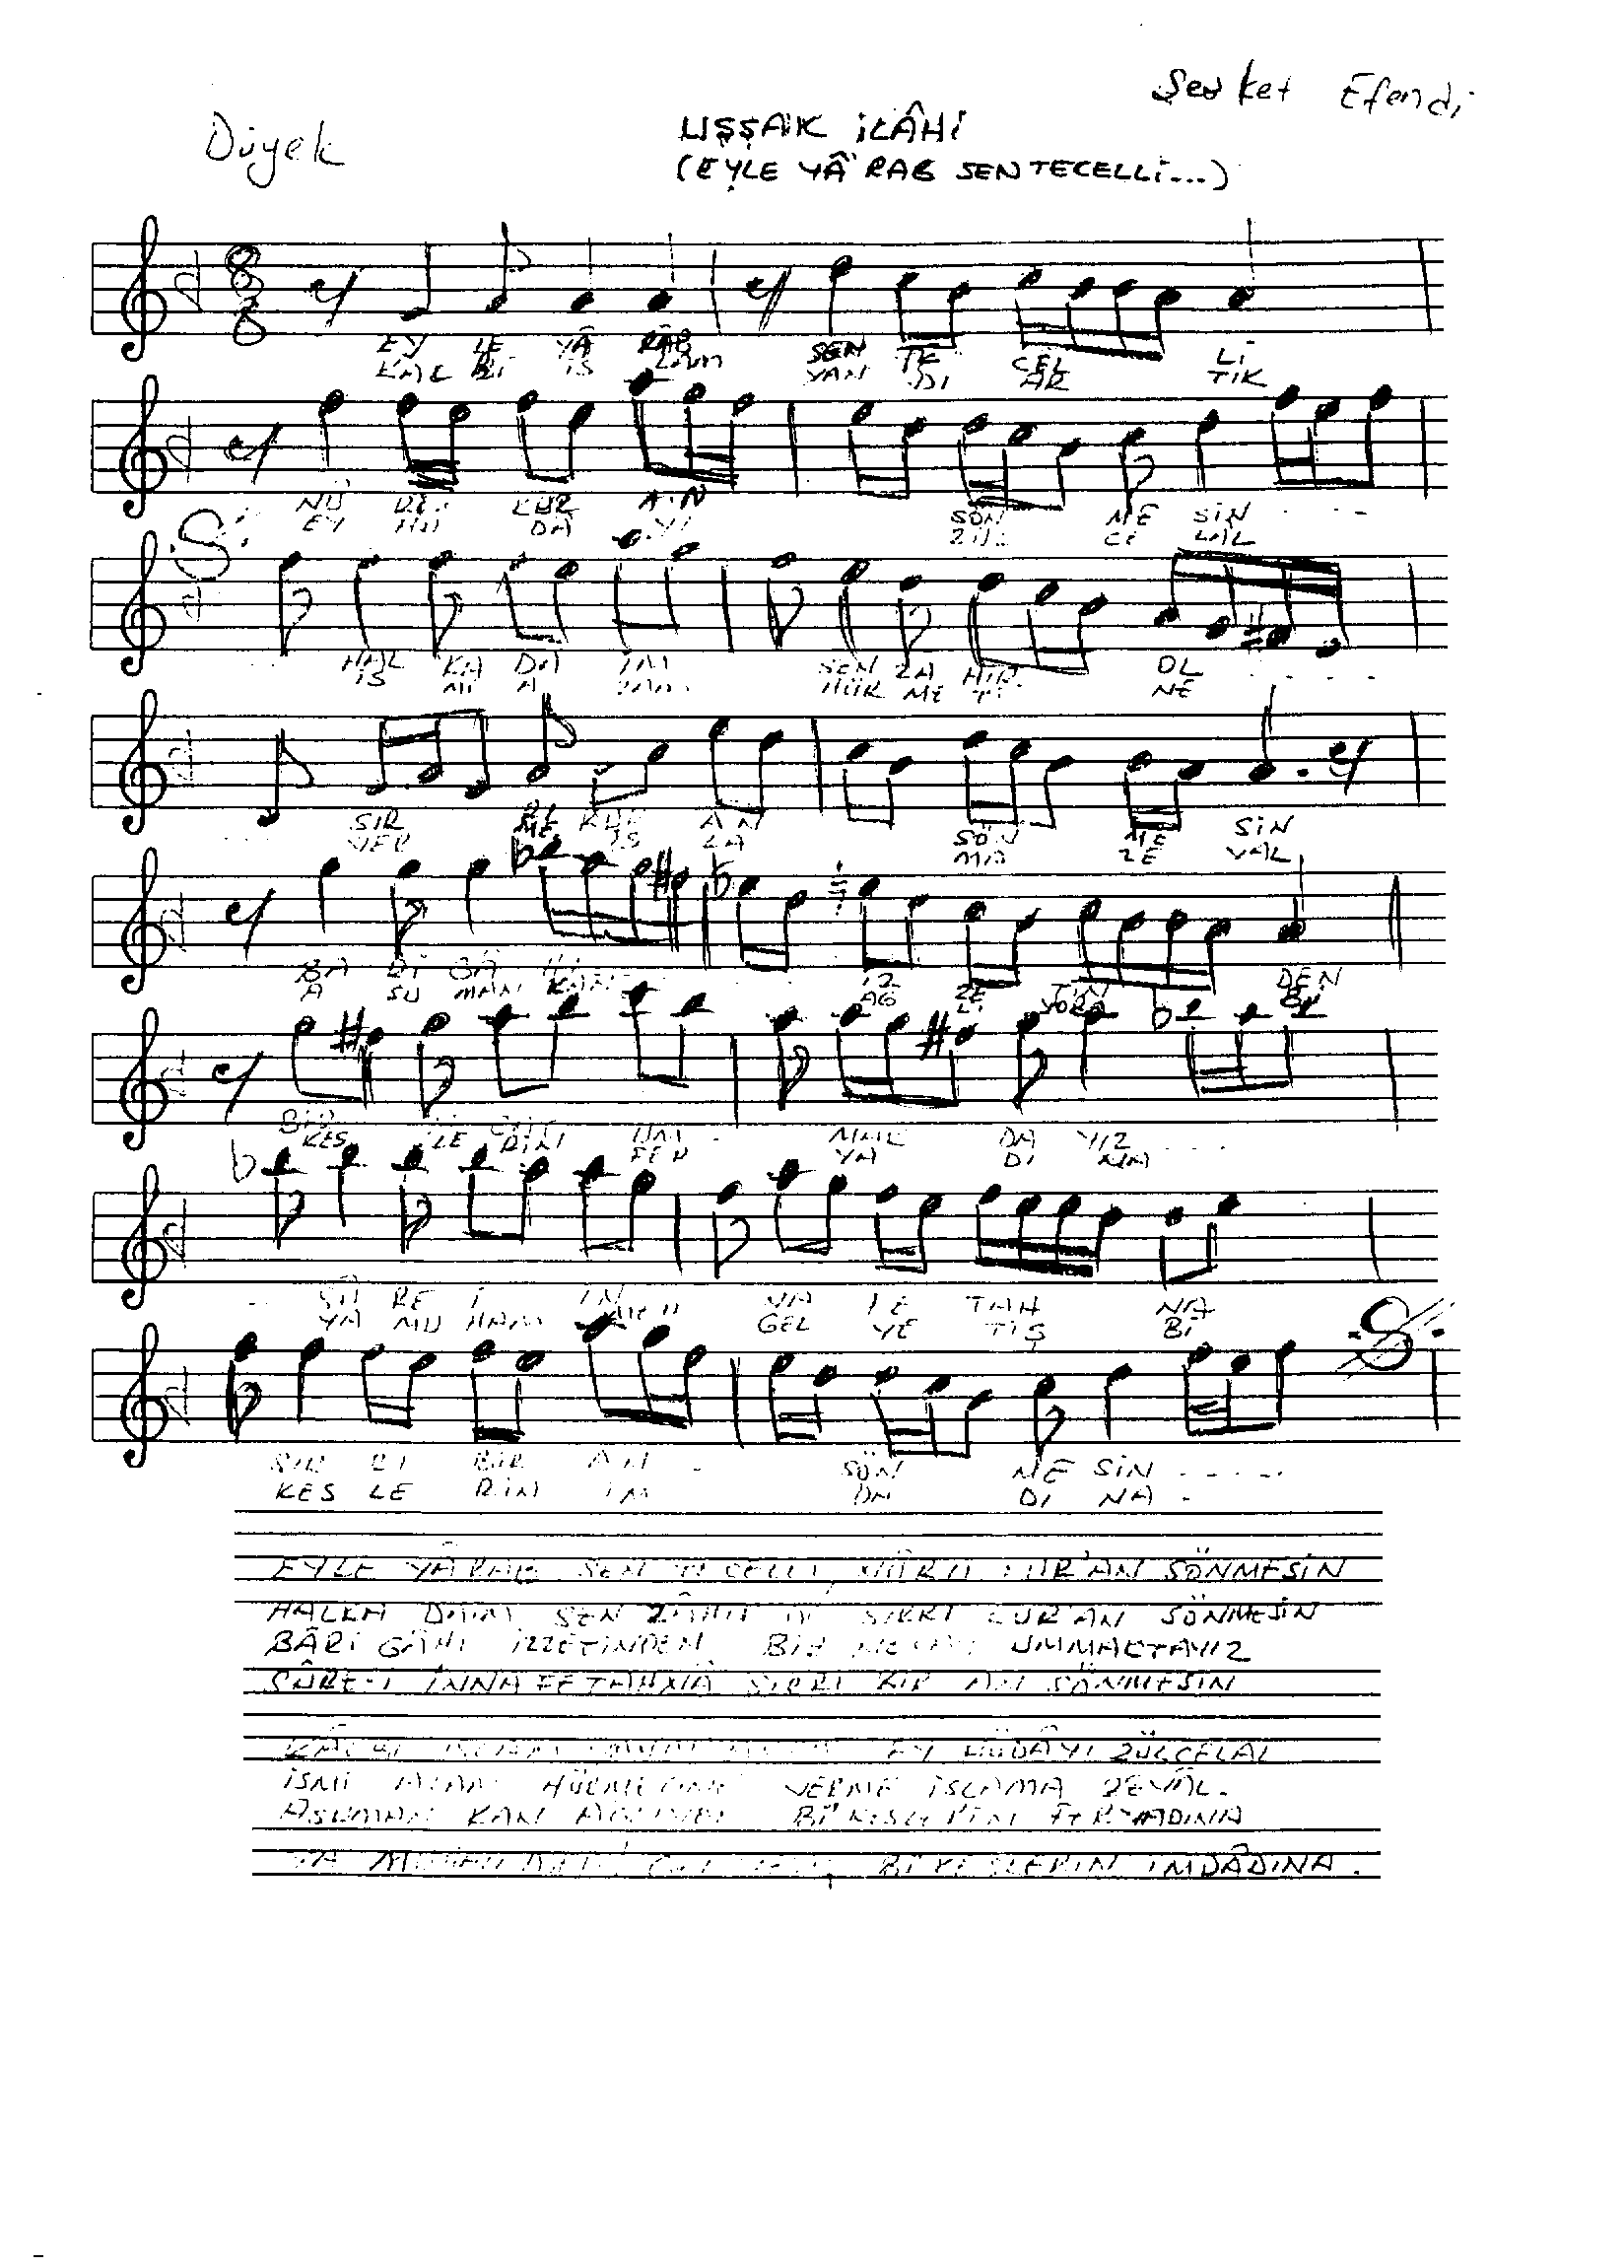 Şevket Efendi
Düyek
UŞŞAK İLÂHİ
(EYLE YÂ RAB SEN TECELLİ...)
8
8
EY LE YÂ RÂB SEN TE CEL Lİ
KAL Bİ İS LAM YAN DI AR TIK
NÛ Rİ KUR AN SÖN ME SİN
EY HÜ DÂ Yİ ZÜL CE LAL
HAL KA DA İM SEN ZA HİR OL
İS Mİ A ZAM HÜR ME Tİ NE
SIR RI KUR AN SÖN ME SİN
VER ME İS LA MA ZE VAL
BA Rİ GÂ Hİ İZ ZE TİN DEN
A SU MAN KAN AĞ LI YOR Bİ
BİR UM MAK DA YIZ
KES LE RİN FER YA DI NA
SÛ RE İ İN NA FE TAH NA
YA MU HAM MED GEL YE TİŞ Bİ
SIR RI BİR AN SÖN ME SİN
KES LE RİN İM DA DI NA
EYLE YÂRAB SEN TECELLİ, NÛR-U KUR'AN SÖNMESİN
HALKA DAİM SEN ZÂHİR OL SIRRI KUR'AN SÖNMESİN
BÂRİ GÂHI İZZETİNDEN BİR UMMAKTAYIZ
SÛRE-İ İNNA FETAHNÂ SIRRI BİR AN SÖNMESİN
KALBİ EY HÜDÂYI ZÜLCELAL
İSMİ AZAM HÜRMETİNE VERME İSLAMA ZEVÂL.
ASUMAN KAN AĞLIYOR BİKESLERİN FERYADINA
YA MUHAMMED BİKESLERİN İMDÂDINA.